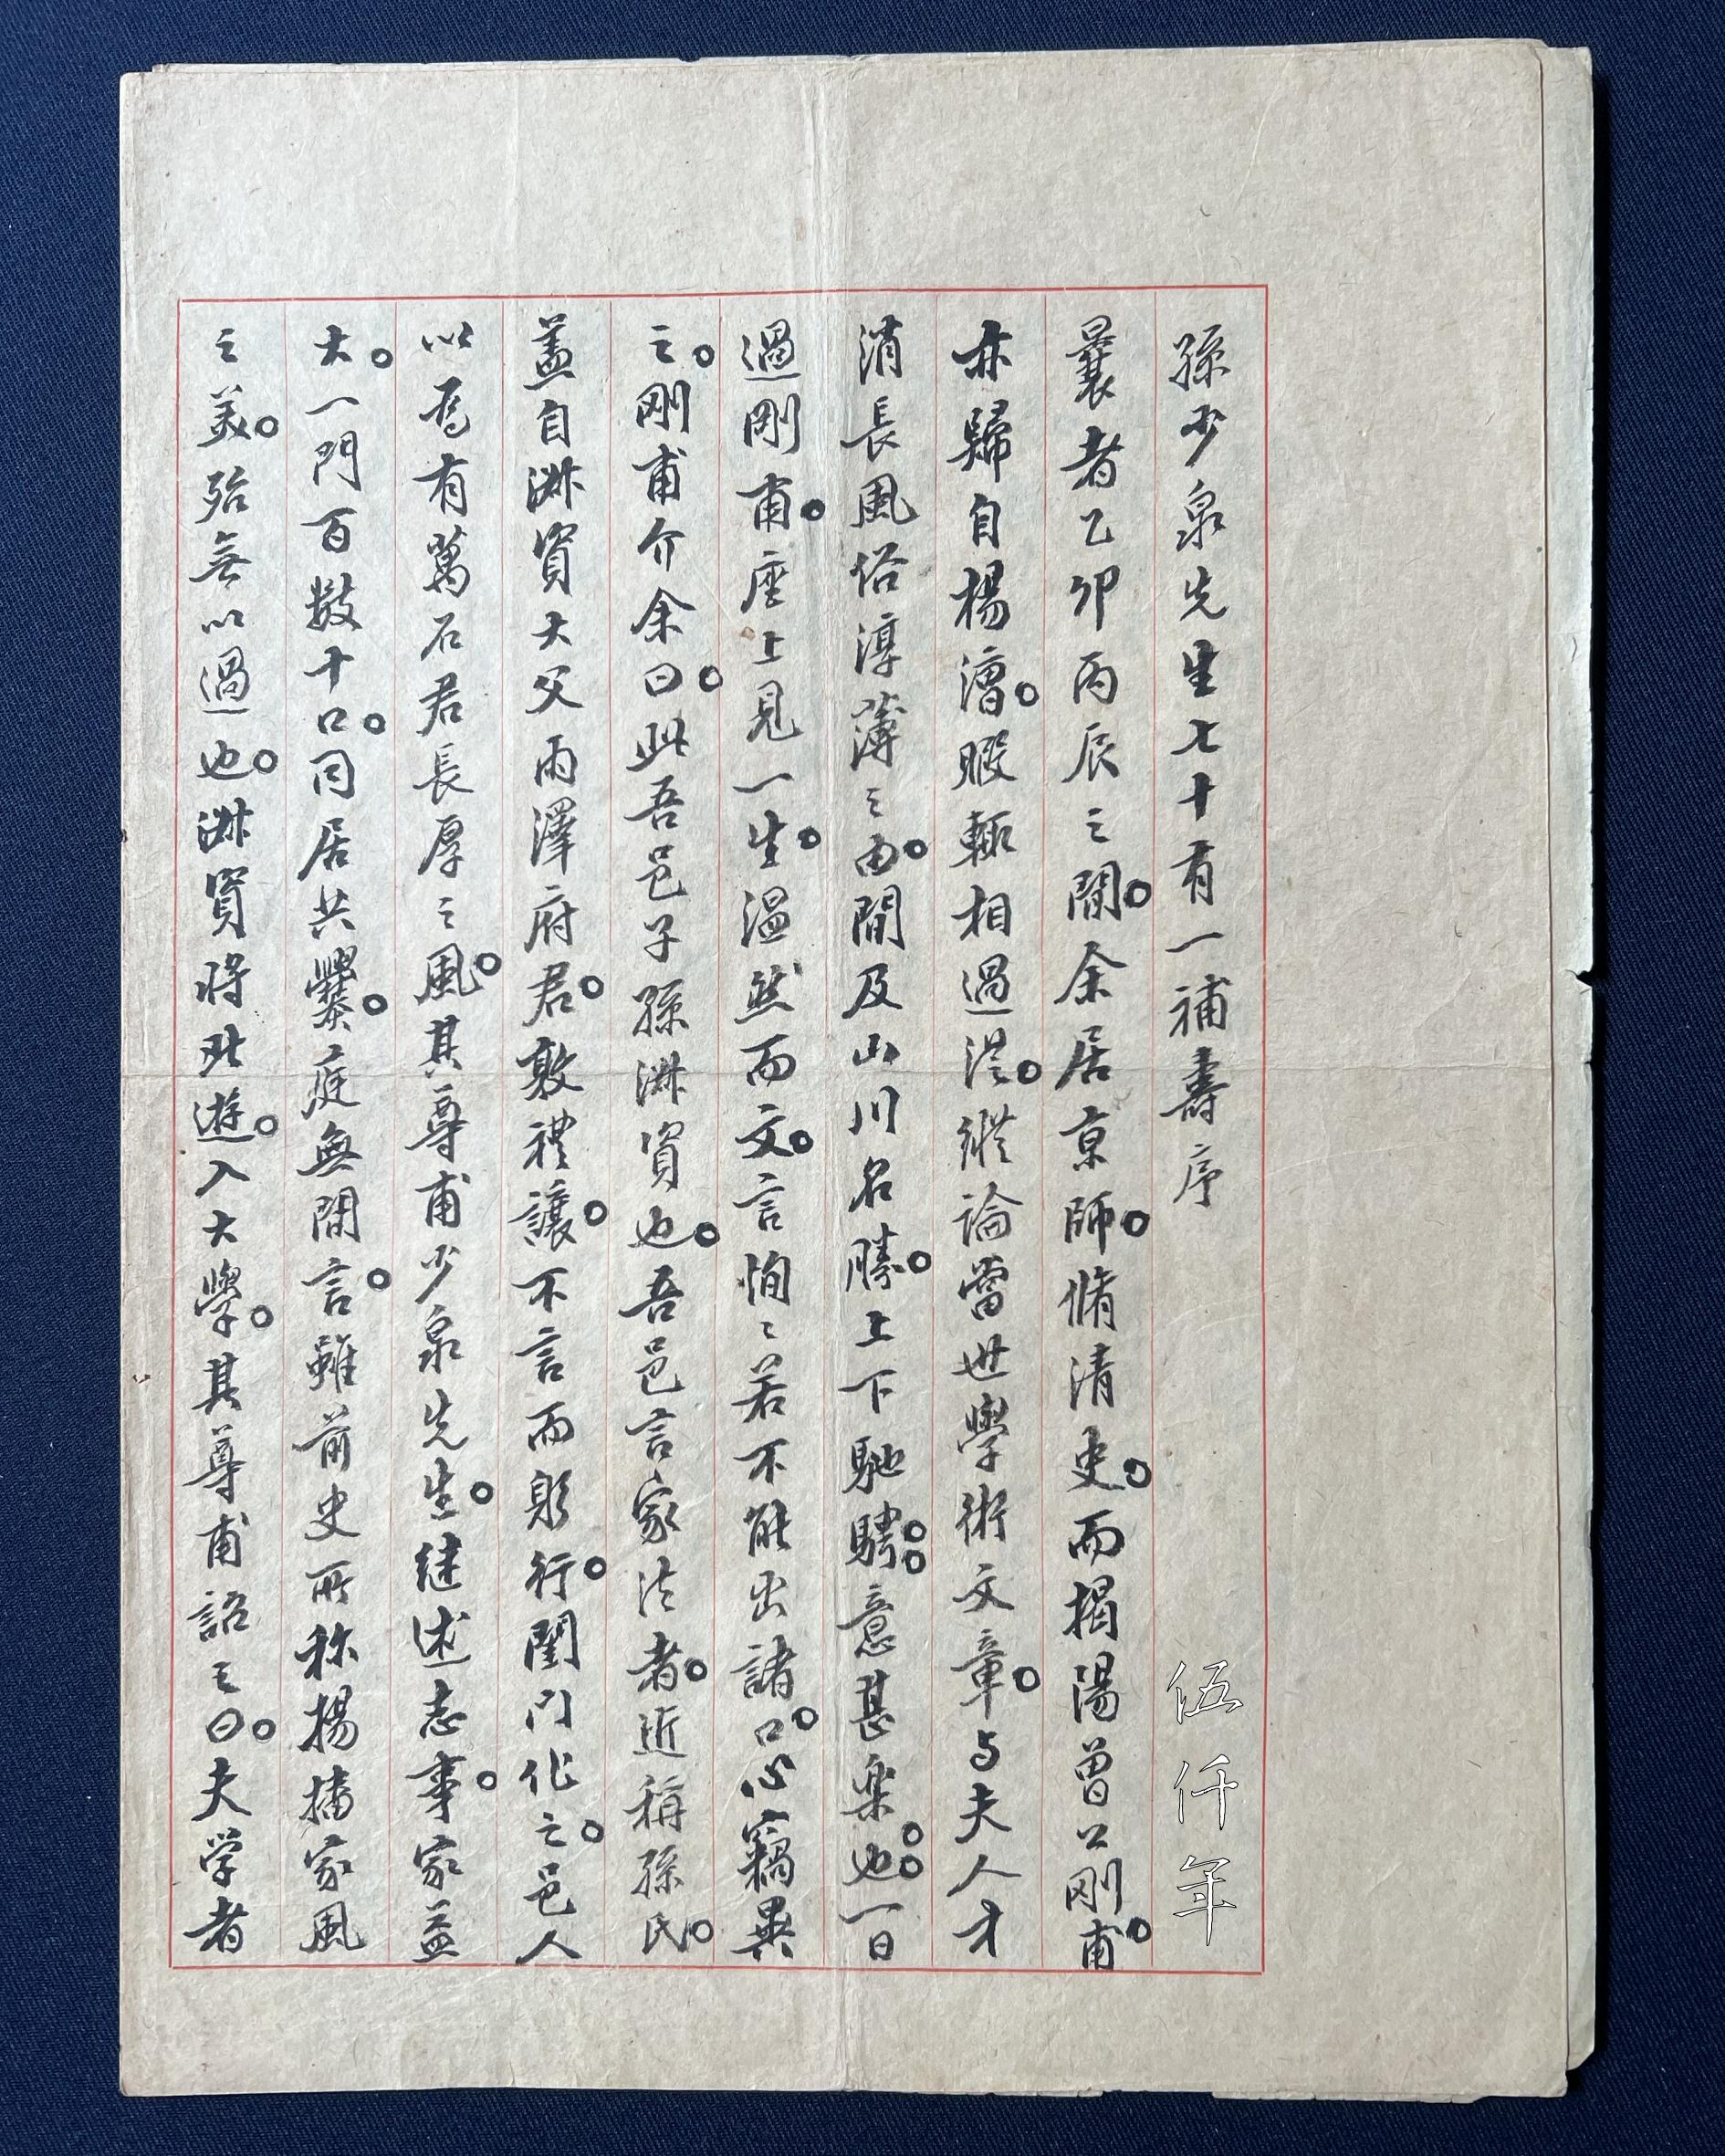 孫少泉先生七十有一補壽序
曩者乙卯丙辰之間。余居京師。脩清史。而揭陽曾公剛甫。
亦歸自楊漕。暇輒相過從。縱論當世學術文章。与夫人才
消長風俗淳薄之由。間及山川名勝。上下馳騁。。意甚楽也。。一日
過剛甫。座上見一生。溫然而文。言恂〻若不能出諸口。心竊異
之。剛甫介余曰。此吾邑子孫淋資也。吾邑言家法者。近稱孫氏。
蓋自淋資大父雨澤府君。敦禮讓。不言而躬行。閨门化之。邑人
以為有萬石君長厚之風。其尊甫少泉先生。継述志事。家益
大。一門百数十口。同居共爨。庭無閒言。雖前史所称揚播家風
之美。殆無以過也。淋資将北遊。入大學。其尊甫詔之曰。夫学者
伍仟年